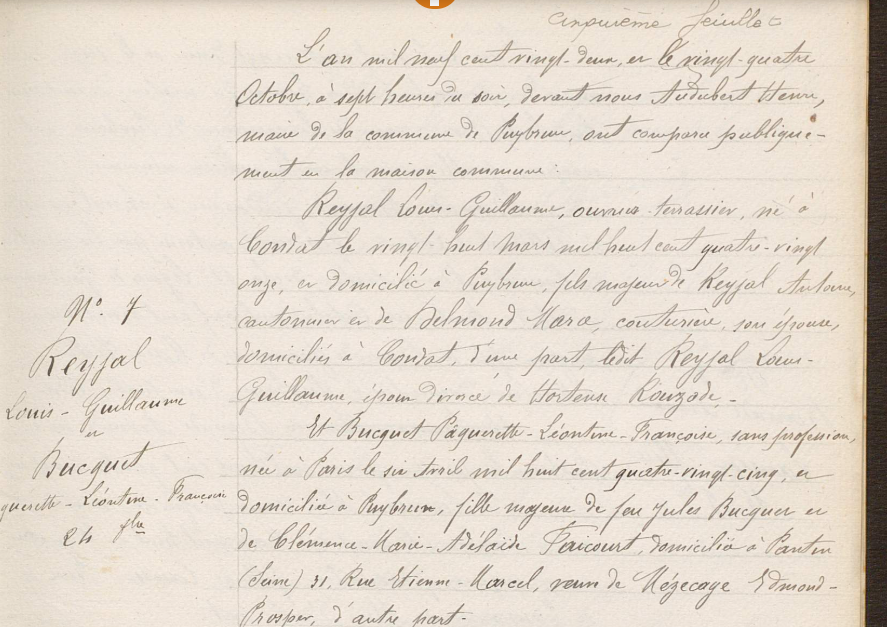 cinquième feuillet
L'an mil neuf cent vingt-deux, et le vingt-quatre
Octobre, à sept heures du soir, devant nous Audubert Henri,
maire de la commune de Puybrun, ont comparu publique-
ment en la maison commune :
Reyjal Louis-Guillaume, ouvrier terrassier, né à
Condat le vingt-huit Mars mil huit cent quatre-vingt
onze, et domicilié à Puybrun, fils majeur de Reyjal Antoine,
cantonnier et de Delmond Mara, couturière, son épouse,
domiciliés à Condat, d'une part, ledit Reyjal Louis-
Guillaume, époux divorcé de Hortense Rouzade. -
Et Bucquet Pâquerette-Léontine-Françoise, sans profession,
née à Paris le six Avril mil huit cent quatre-vingt-cinq, et
domiciliée à Puybrun, fille majeure de feu Jules Bucquet et
de Clémence-Marie-Adélaïde domiciliée à Pantin
(Seine) 31, Rue Etienne-Marcel, veuve de Mézecaye Edmond-
Prosper, d'autre part.
N° 7
Reyjal
Louis-Guillaume
et
Bucquet
querette-Léontine-Françoise
24 8bre